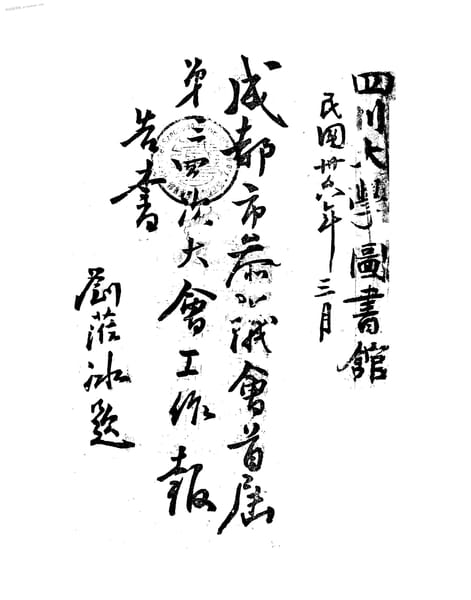 四川大學圖書館
民國卅六年三月
成都市參議會首屆
第三四次大會工作報
告書
劉蓓冰題